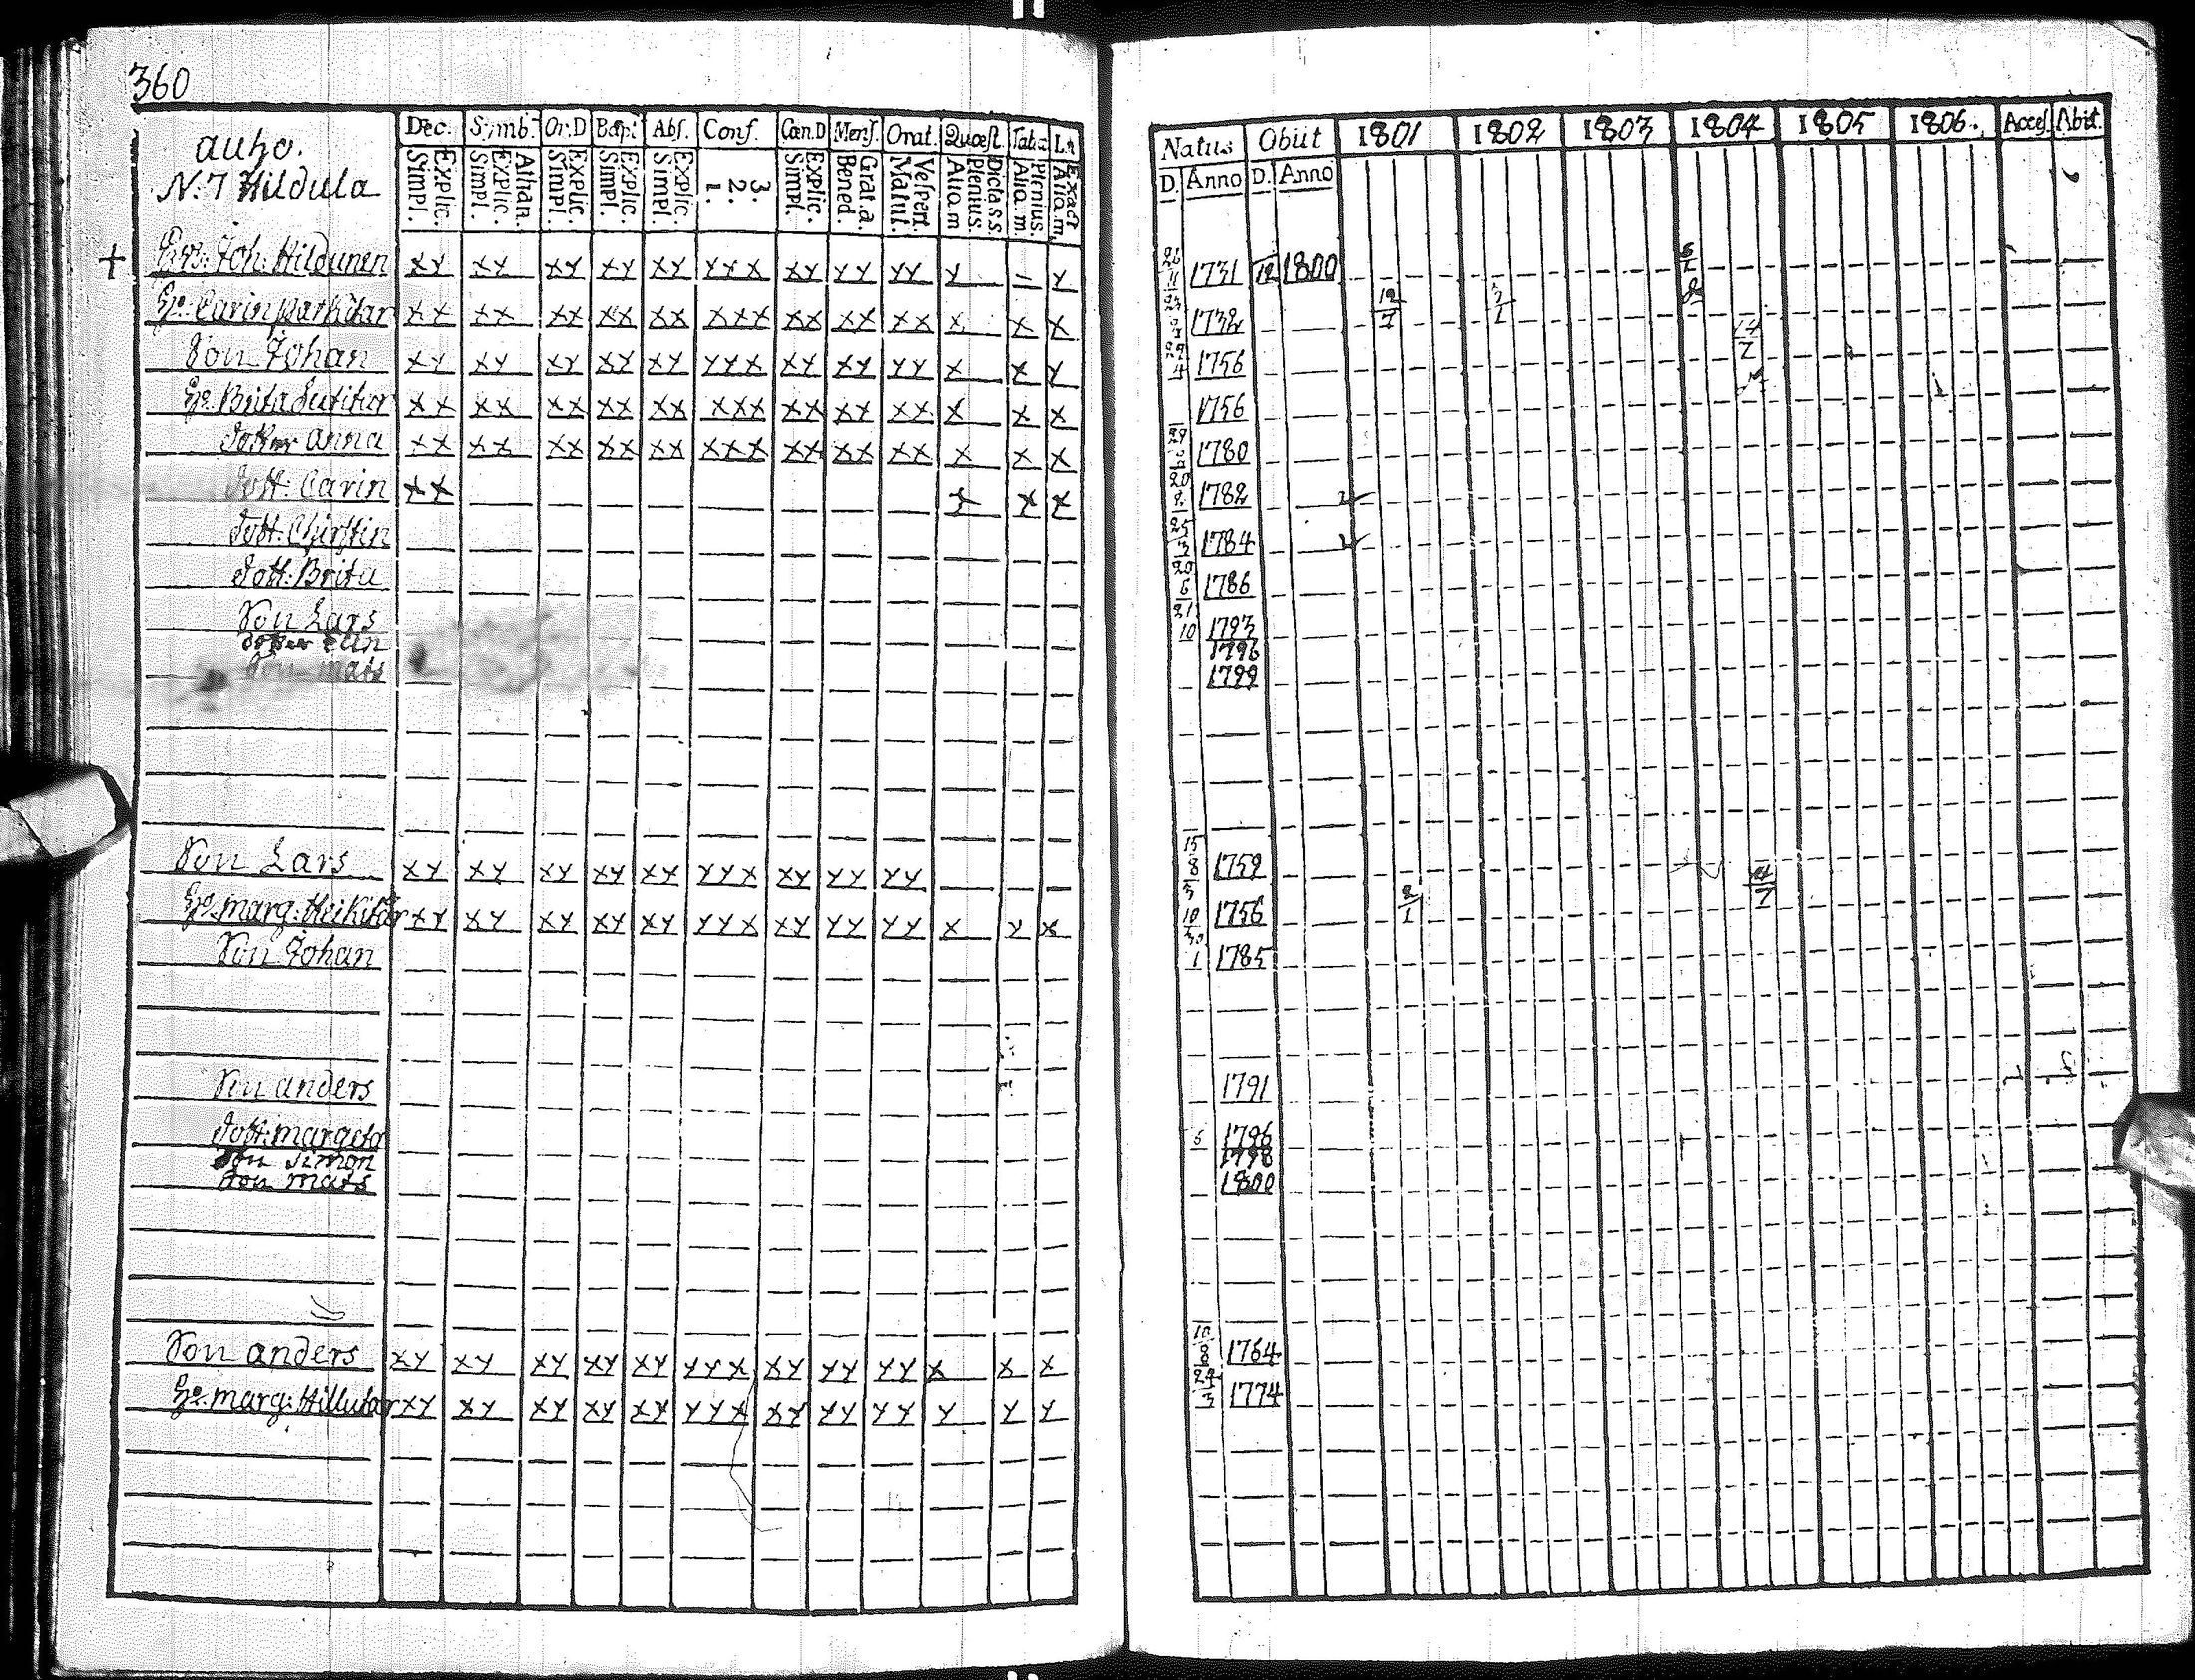 360
auho.
N:7 Hildula
Dec. Symb. Or.D Bapt. Abs. Conf. Cœn.D Mens. Orat. Quæst. Tab.
Explic. Simpl. Athan. Explic. Simpl. Explic. Simpl. Explic. Simpl. Explic. Simpl. 3. 2. 1. Explic. Simpl. Grat.a. Bened. Vespert. Matut. Dicta s.s. Plenius. Alio.m Plenius. Alio.m. Exact Alio.m.
Natus Obiit 1801 1802 1803 1804 1805 1806. Acces. Abit.
D. Anno D. Anno
+ Joh: Hildunen xy xy xy xy xy yyx xy yy yy y – y 1731 12 1800
Carin xx xx xx xx xx xxx xx xx xx x x x 1732
Son Johan xy xy xy xy xy yyx xy xy yy x x y 1756
Brita xx xx xx xx xx xxx xx xx xx x x x 1756
Anna xx xx xx xx xx xxx xx xx xx x x x 1780
Dott: Carin xx x x x 20 1782
Dott: Chirstin 25 3 1784
Dott: Brita 20 6 1786
Son Lars 21 10 1793
Elin 1796
Son Mats 1799
Son Lars xy xy xy xy xy yyx xy yy yy 15 8 1759
Marg: xy xy xy xy xy yyx xy yy yy x y x 10 1756
Son Johan 30 1 1785
Son Anders 1791
Dott: Margeta 5 1796
Son Simon 1798
Son Mats 1800
Son Anders xy xy xy xy xy yyx xy yy yy x x x 10 1764
Marg: Hillutar xy xy xy xy xy yyx xy yy yy y y y 3 1774